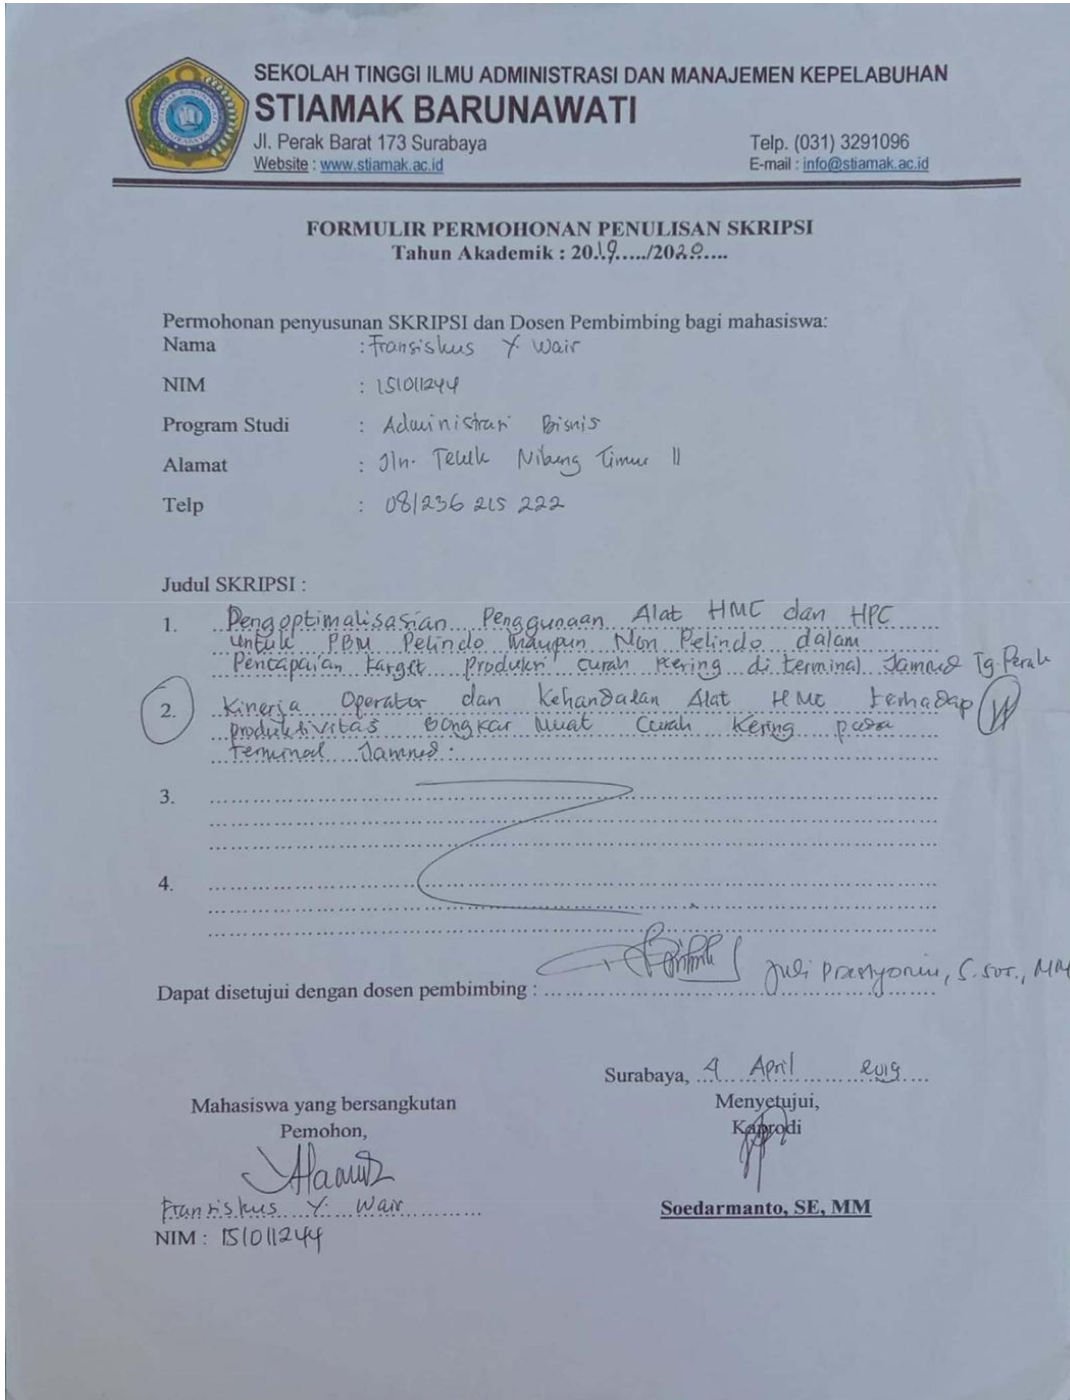 SEKOLAH TINGGI ILMU ADMINISTRASI DAN MANAJEMEN KEPELABUHAN
STIAMAK BARUNAWATI
Jl. Perak Barat 173 Surabaya Telp. (031) 3291096
Website : www.stiamak.ac.id E-mail : info@stiamak.ac.id
FORMULIR PERMOHONAN PENULISAN SKRIPSI
Tahun Akademik : 2019...../2020.....
Permohonan penyusunan SKRIPSI dan Dosen Pembimbing bagi mahasiswa:
Nama : Fransiskus Y. Wair
NIM : 151011244
Program Studi : Administrasi Bisnis
Alamat : Jln. Teluk Nibung Timur II
Telp : 081236 215 222
Judul SKRIPSI :
1. Pengoptimalisasian Penggunaan Alat HMC dan HPC
untuk PBM Pelindo maupun Non Pelindo dalam
Pencapaian target produksi curah kering di terminal Jamrud Tg. Perak
2. Kinerja Operator dan Kehandalan Alat HMC terhadap
produktivitas Bongkar Muat Curah Kering pada
Terminal Jamrud.
3.
4.
Dapat disetujui dengan dosen pembimbing : Juli Prastyorini, S.Sos., MM
Surabaya, 4 April 2019
Mahasiswa yang bersangkutan Menyetujui,
Pemohon, Kaprodi
Fransiskus Y. Wair Soedarmanto, SE, MM
NIM : 151011244